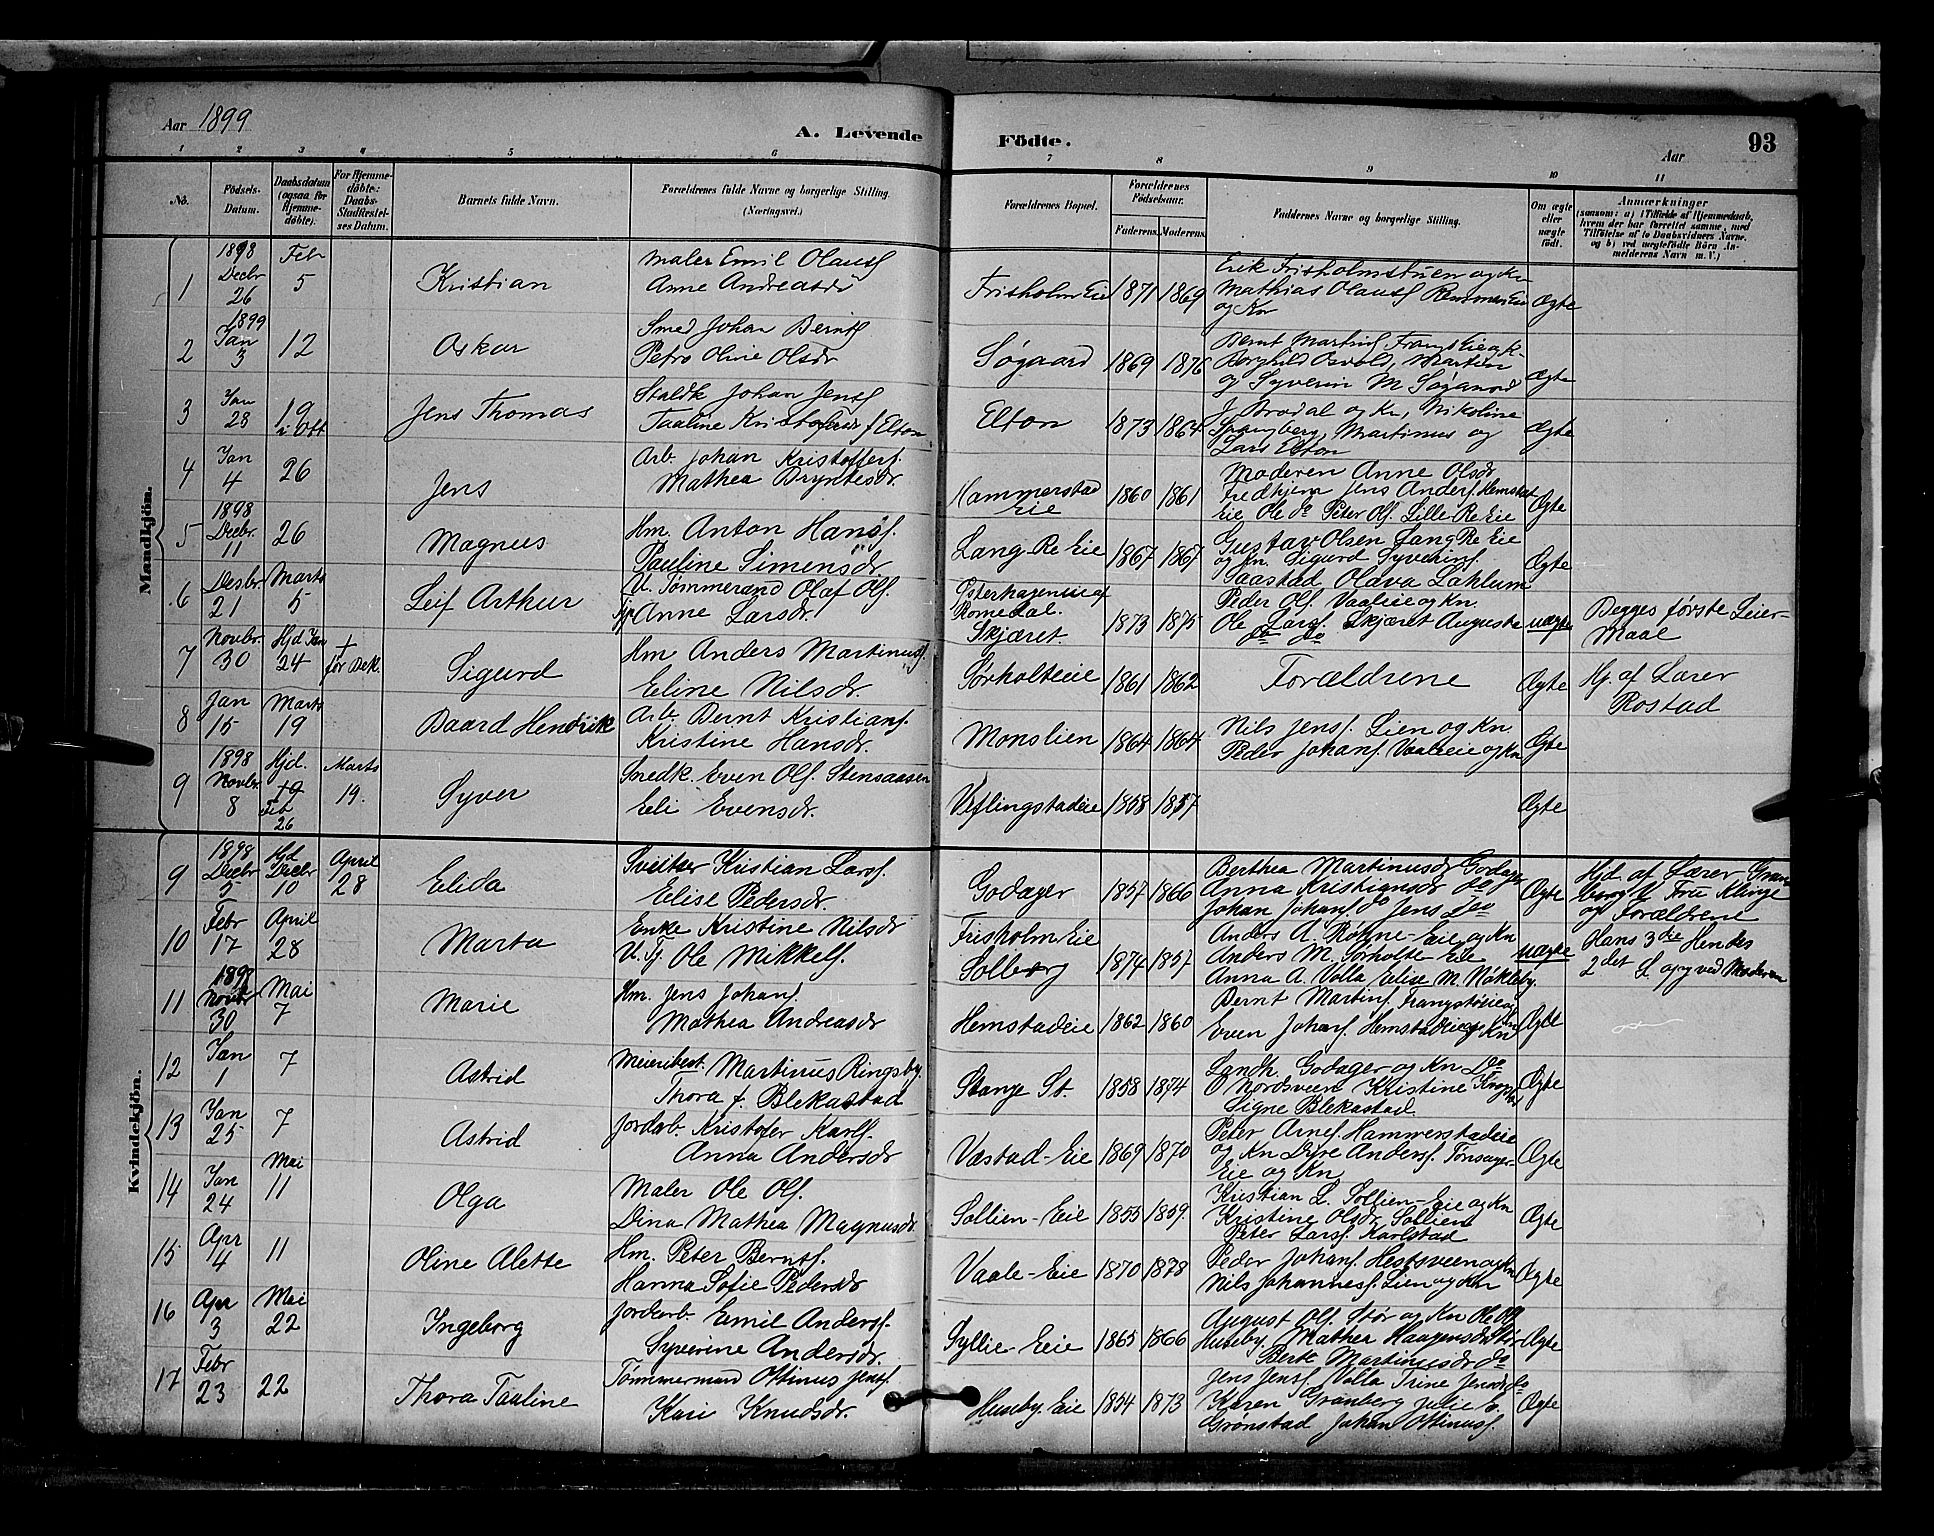 Aar 1899
A. Levende Födte.
93
Aar
1 2 3 4 5 6 7 8 9 10 11
No.
Födsels-Datum.
Daabsdatum (ogsaa for Hjemme-döbte).
For Hjemme-döbte: Daabs-Stadfæstel-ses Datum.
Barnets fulde Navn.
Forældrenes fulde Navne og borgerlige Stilling. (Næringsvei.)
Forældrenes Bopæl.
Forældrenes Födselsaar.
Faderens. Moderens.
Faddernes Navne og borgerlige Stilling.
Om ægte eller uægte födt.
Anmærkninger (saasom: a) i Tilfælde af Hjemmedaab, hvem der har forrettet samme, med Tilföielse af to Daabsvidners Navne, og b) ved uægtefödte Börn Anmelderens Navn m. V.)
Mandkjön.
1 1898 Decbr 26 Feb 5 Kristian Maler Emil Olauss Anne Andreasdr Frisholm Eie 1871 1869 Erik Frisholmstuen og Kn Mathias Olauss og Kn Ægte
2 1899 Jan 3 12 Oskar Smed Johan Bernts Petro Oline Olsdr Søgaard 1869 1876 Bernt Martins Borghild Osvold, Martin og Syverin M Søgaard Ægte
3 Jan 28 19 i Ott Jens Thomas Staldk Johan Jenss Taaline f Elton Elton 1873 1864 J. Brodal og Kn, Nikoline Spangberg, Martinus og Lars Elton Ægte
4 Jan 4 26 Jens Arb. Johan Kristoffers. Mathea Bryntesdr. Hammerstad Eie 1860 1861 Moderen Anne Olsdr Jens Anders. Hemstad Eie Ole do Peter Ols. Lille-Re Eie Ægte
5 1898 Decbr. 11 26 Magnus Hm. Anton Hans. Pauline Simensdr Lang-Re Eie 1867 1867 Gustav Olsen Lang Re Eie og Kn. Sigurd Syverins. Saastad Olava Lahlum Ægte
6 Desbr. 21 Marts 5 Leif Arthur U. Tømmermand Olaf Ols. Anne Larsdr. Østerhagen eie af Romedal. Skjæret. 1873 1875 Peder Ols. Vaaleie og Kn. Ole Lars. Skjæret Augusta do do uægte Begges første Leiermaal
7 Novbr. 30 Hjd. Jan 24 † før Bek. Sigurd Hm Anders Martinus. Eline Nilsdr. Sørholteie 1861 1862 Forældrene Ægte Hj. af Lærer Rostad
8 Jan 15 Marts 19 Baard Hendrik Arb. Bernt Kristians. Kristine Hansdr. Monslien 1864 1864 Nils Jens. Lien og Kn Peder Johans. Vaaleie og Kn Ægte
9 1898 Novbr. 8 Hjd. Feb 26 Marts 19. Syver Snedk. Even Ols. Stensaasen Eli Evensdr. Veflingstadeie 1858 1857 Ægte
Kvindekjön.
9 1898 Decbr 5 Hjd Decbr 10 April 28 Elida Sveitser Kristian Lars. Elise Pedersdr. Godager 1857 1866 Berthea Martinusdr Godager Anna Kristiansdr do Johan Johans. do Jens do Ægte Hjd. af Lærer Granberg Fru Klinge og Forældrene
10 Febr 17 April 28 Marta Enke Kristine Nilsdr U. Tj. Ole Mikkels. Frisholm Eie Solberg 1874 1857 Anders A. Rogne-Eie og Kn Anders M. Sørholte-Eie Anna A. Volla Elise M. Nökleby. uægte Hans 3die Hendes 2det L. opg ved Moderen
11 1898 Novbr 30 Mai 7 Marie Hm. Jens Johans. Mathea Andreasdr Hemstadeie 1862 1860 Bernt Martins. Even Johans. Hemstadeie og Kn Ægte
12 Jan 1 7 Astrid Meieribest. Martinus Ringsby. Thora f. Blekastad Stange St. 1858 1874 Landh. Godager og Kn Do O Nordsveen Kristine Signe Blekastad Ægte
13 Jan 25 7 Astrid Jordarb. Kristofer Karls. Anna Andersdr Væstad-Eie 1869 1870 Peter Arnes. Hammerstadeie og Kn Dyre Anders. Tønsager-Eie og Kn Ægte
14 Jan 24 Mai 11 Olga Maler Ole Ols. Dina Mathea Magnusdr Sollien-Eie 1855 1859. Kristian L. Sollien-Eie og Kn Kristine Olsdr Sollien Peter Lars. Karlstad Ægte
15 Apr 4 11 Oline Alette Hm. Peter Bernts. Hanna Sofie Pedersdr Vaale-Eie 1870 1878 Peder Johans. Hestsveen og Kn Nils Johannes. Lien og Kn Ægte
16 Apr 3 Mai 22 Ingeborg Jordarb. Emil Anders. Syverine Andersdr. Syllie-Eie 1865 1866 August Ols. Stør og Kn Ole Ols Huseby. Mathea Haagensdr Stør Berte Martinusdr do Ægte
17 Febr 23 22 Thora Taaline Tømmermand Ottinus Jens. Kari Knudsdr. Huseby. Eie 1854 1873 Jens Jens. Volla Trine Jensdr do Karen Granberg Julie E. Grønstad Johan Ottinus. Ægte